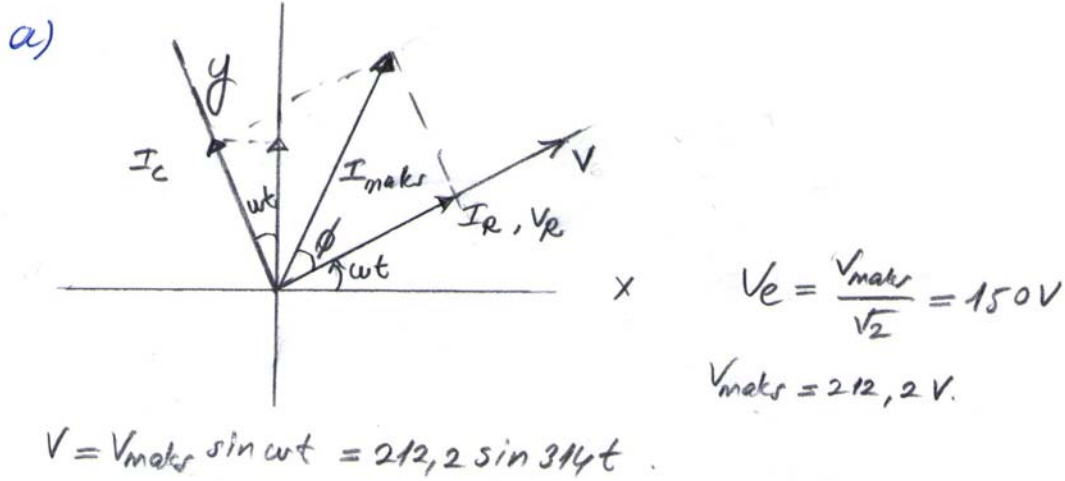 a)
y
I_c
I_maks
V
ωt
ϕ
I_R, V_R
ωt
x
V_e = V_maks / √2 = 150 V
V_maks = 212,2 V.
V = V_maks sin ωt = 212,2 sin 314t.